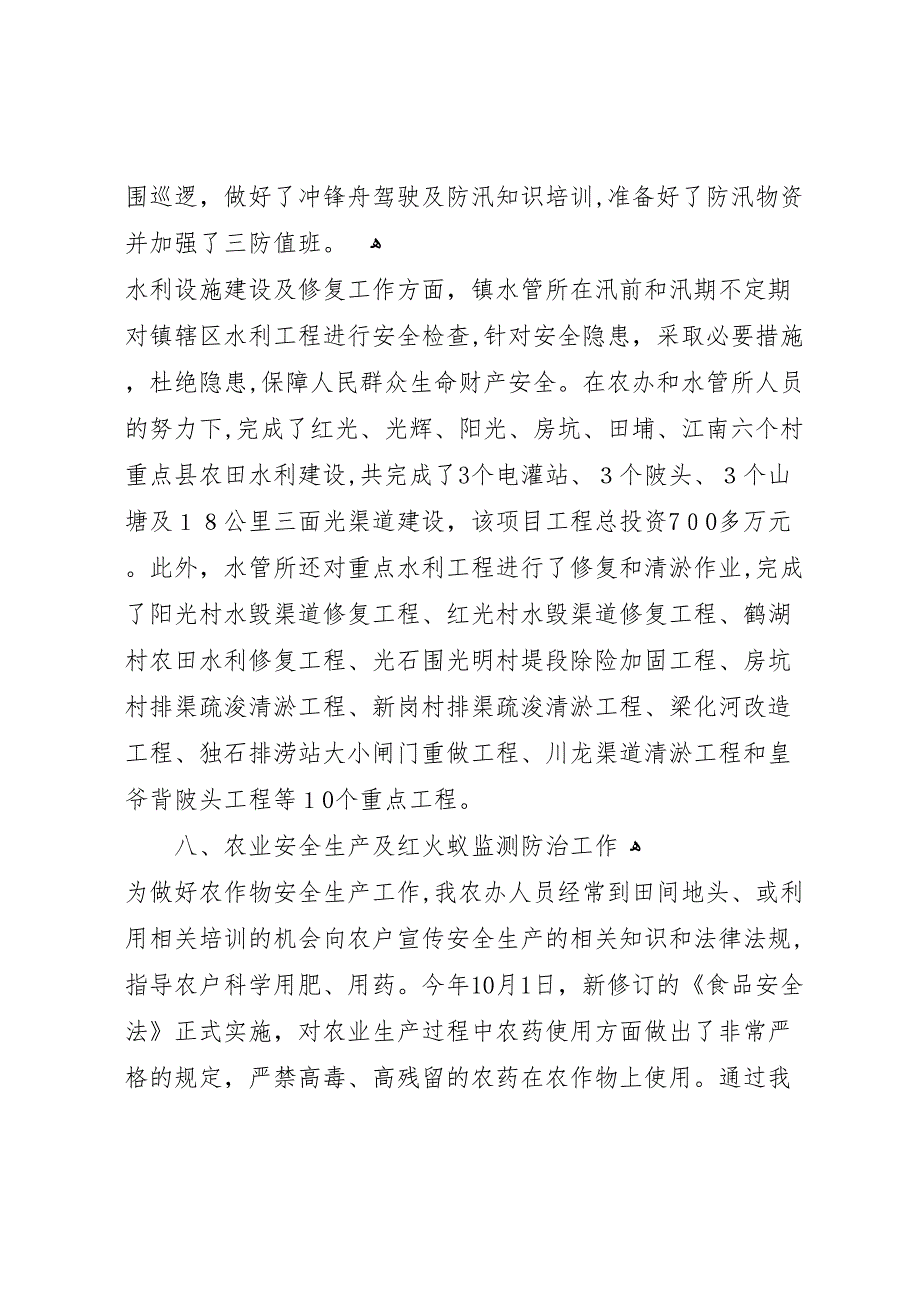 围巡逻，做好了冲锋舟驾驶及防汛知识培训,准备好了防汛物资
并加强了三防值班。 ﻫ
水利设施建设及修复工作方面，镇水管所在汛前和汛期不定期
对镇辖区水利工程进行安全检查,针对安全隐患，采取必要措施
，杜绝隐患,保障人民群众生命财产安全。在农办和水管所人员
的努力下,完成了红光、光辉、阳光、房坑、田埔、江南六个村
重点县农田水利建设,共完成了3个电灌站、３个陂头、３个山
塘及１８公里三面光渠道建设，该项目工程总投资7００多万元
。此外，水管所还对重点水利工程进行了修复和清淤作业,完成
了阳光村水毁渠道修复工程、红光村水毁渠道修复工程、鹤湖
村农田水利修复工程、光石围光明村堤段除险加固工程、房坑
村排渠疏浚清淤工程、新岗村排渠疏浚清淤工程、梁化河改造
工程、独石排涝站大小闸门重做工程、川龙渠道清淤工程和皇
爷背陂头工程等１0个重点工程。
八、农业安全生产及红火蚁监测防治工作 ﻫ
为做好农作物安全生产工作,我农办人员经常到田间地头、或利
用相关培训的机会向农户宣传安全生产的相关知识和法律法规,
指导农户科学用肥、用药。今年10月1日，新修订的《食品安全
法》正式实施，对农业生产过程中农药使用方面做出了非常严
格的规定，严禁高毒、高残留的农药在农作物上使用。通过我